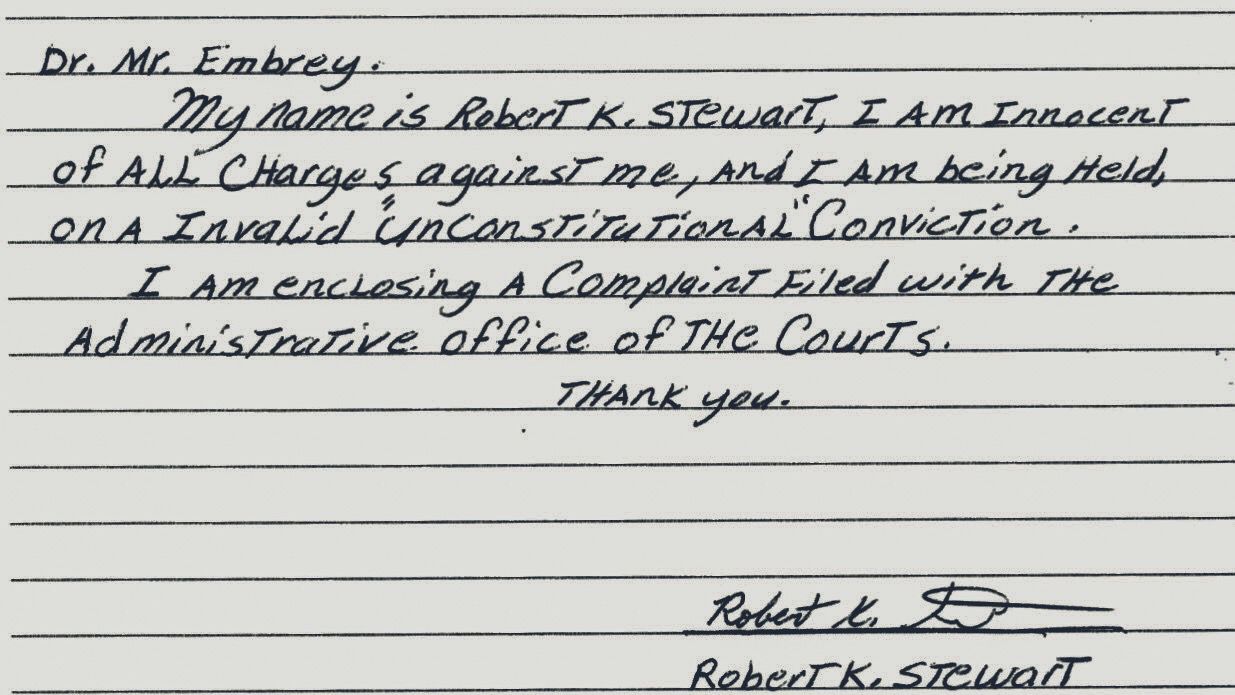 Dr. Mr. Embrey.
My name is Robert K. Stewart, I Am Innocent
of ALL CHarges against me, And I Am being Held,
on A Invalid "UnConstitutionAL" Conviction.
I Am encLosing A Complaint Filed with THe
Administrative office of THe Courts.
THAnk you.
Robert K.
Robert K. Stewart